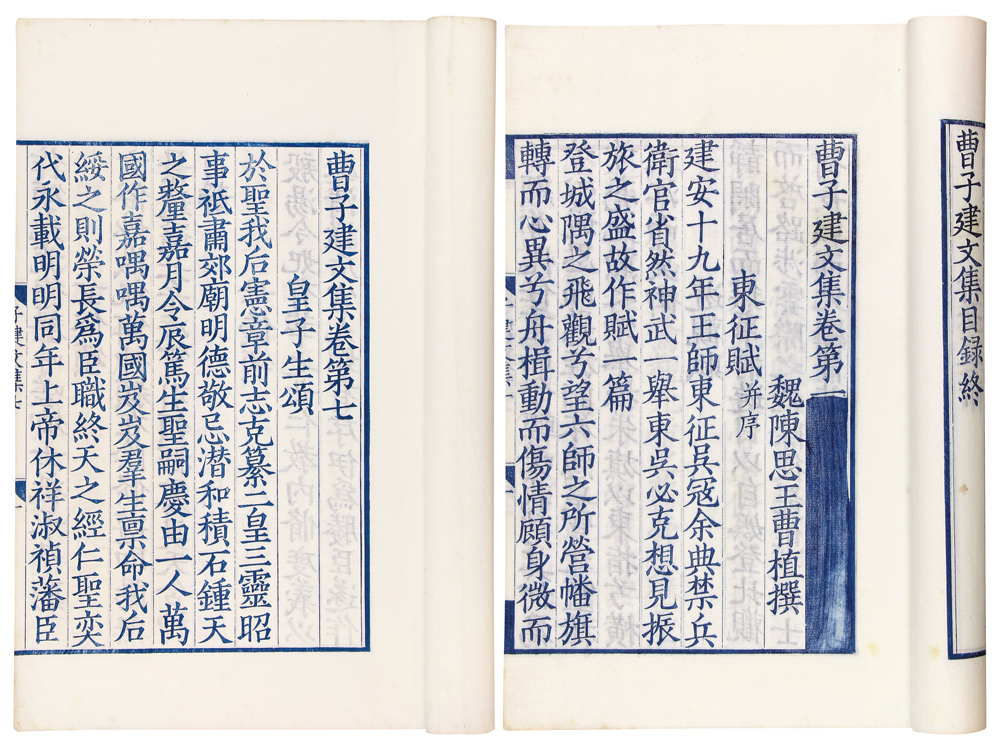 曹子建文集目録終
曹子建文集卷第一
魏陳思王曹植撰
東征賦 并序
建安十九年王師東征吳寇余典禁兵
衛官省然神武一舉東吳必克想見振
旅之盛故作賦一篇
登城隅之飛觀兮望六師之所營幡旗
轉而心異兮舟楫動而傷情顧身微而
曹子建文集卷第七
皇子生頌
於聖我后憲章前志克纂二皇三靈昭
事祗肅郊廟明德敬忌潜和積石鍾天
之釐嘉月令辰篤生聖嗣慶由一人萬
國作嘉喁喁萬國岌岌羣生禀命我后
綏之則榮長爲臣職終天之經仁聖奕
代永載明明同年上帝休祥淑禎藩臣
子建文集七